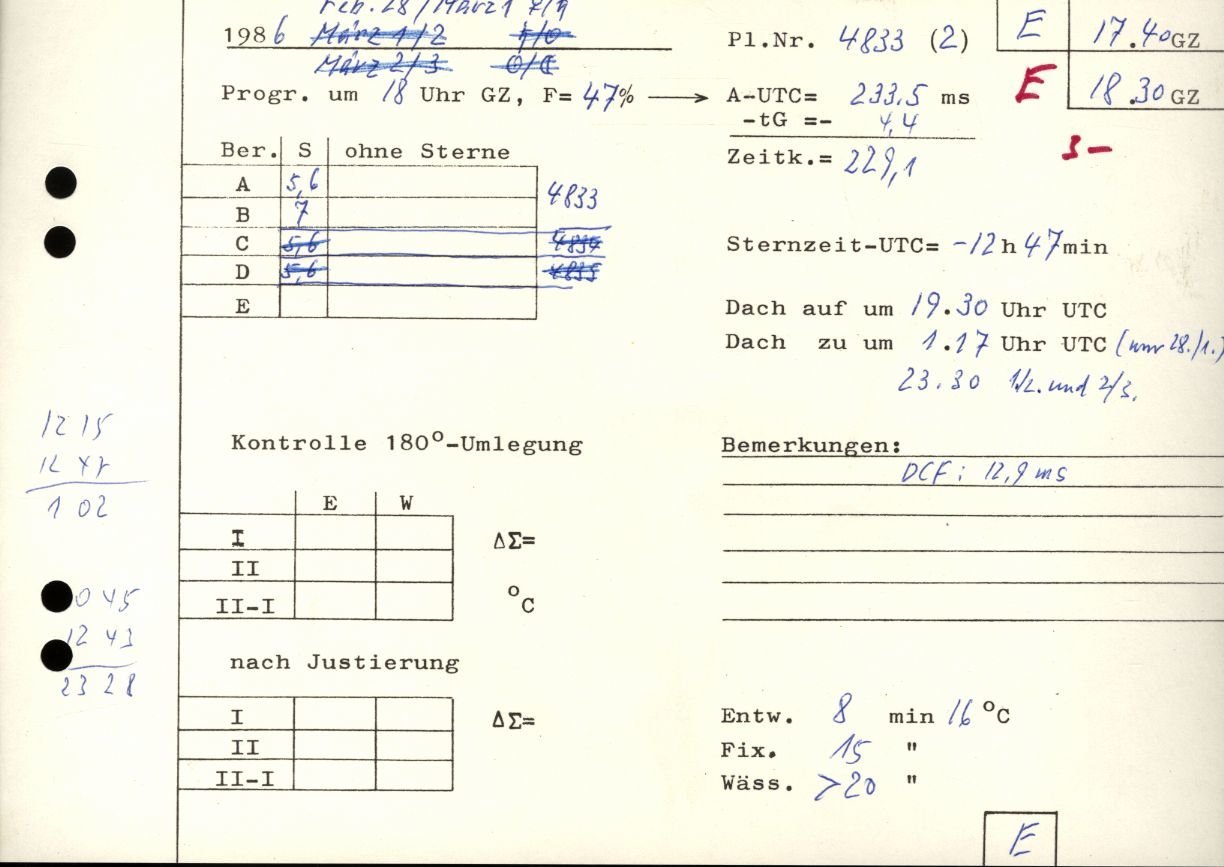 Feb. 28 / März 1
1986 März 1/2
März 2/3
Progr. um 18 Uhr GZ, F= 47%
Pl.Nr. 4833 (2)
E 17.40 GZ
E 18.30 GZ
A-UTC= 233.5 ms
-tG =- 4,4
Zeitk.= 229,1
3-
Ber. S ohne Sterne
A 5,6
4833
B 7
C 5,6 4834
D 5,6 4835
E
Sternzeit-UTC= -12 h 47 min
Dach auf um 19.30 Uhr UTC
Dach zu um 1.17 Uhr UTC (nur 28./1.)
23.30 1/2. und 2/3.
12 15
12 47
1 02
Kontrolle 180°-Umlegung
Bemerkungen:
DCF: 12,9 ms
E W
I ΔΣ=
II
II-I °C
0 45
12 43
23 28
nach Justierung
I ΔΣ=
II
II-I
Entw. 8 min 16 °C
Fix. 15 "
Wäss. >20 "
E